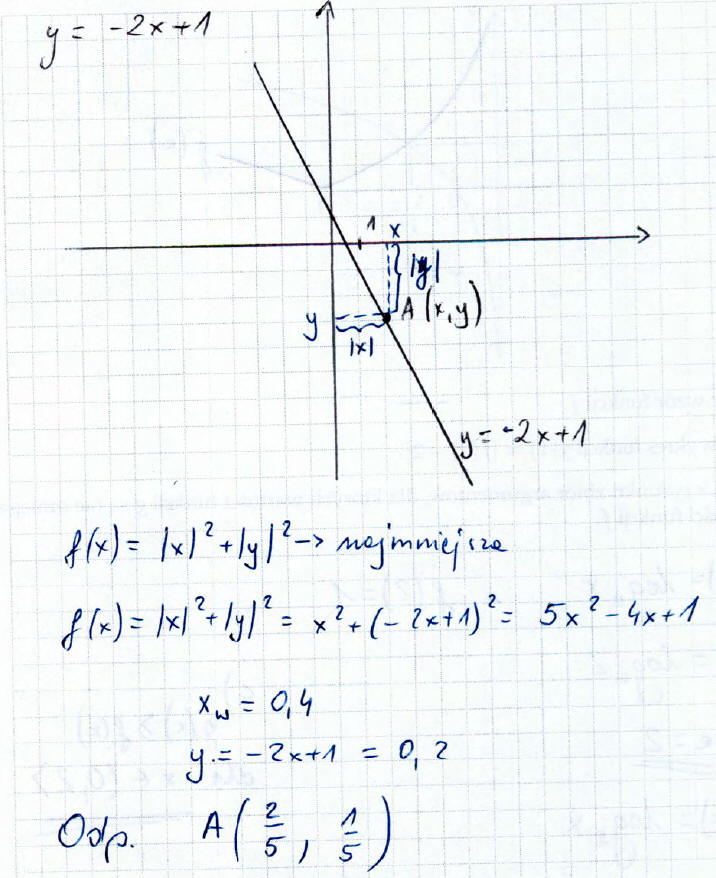 y = -2x+1
1
x
|y|
A(x,y)
y
|x|
y = -2x+1
f(x) = |x|² + |y|² → najmniejsza
f(x) = |x|² + |y|² = x² + (-2x+1)² = 5x² - 4x + 1
x_w = 0,4
y = -2x+1 = 0,2
Odp. A(2/5, 1/5)